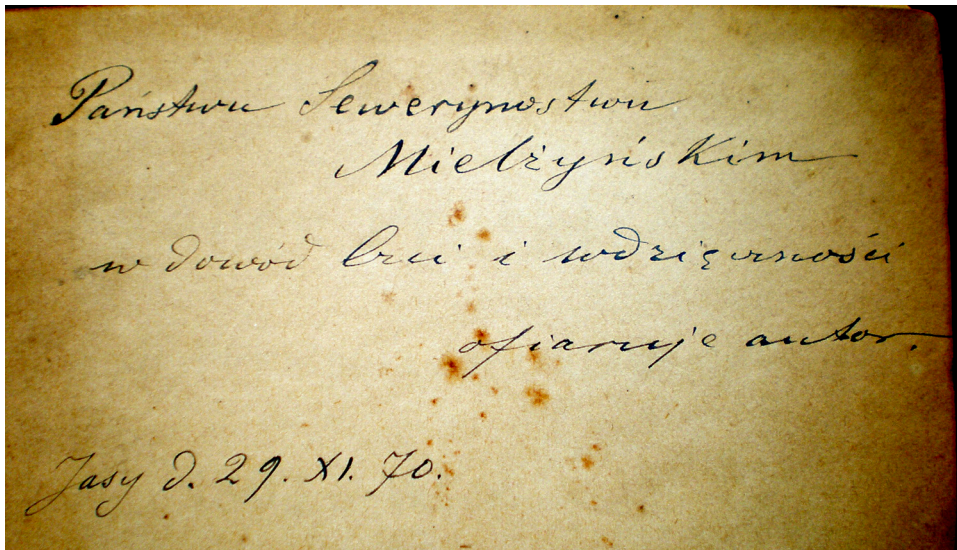 Państwu Sewerynostwu
Mielżyńskim
w dowód Czci i wdzięczności
ofiaruje autor.
Jasy d. 29. XI. 70.